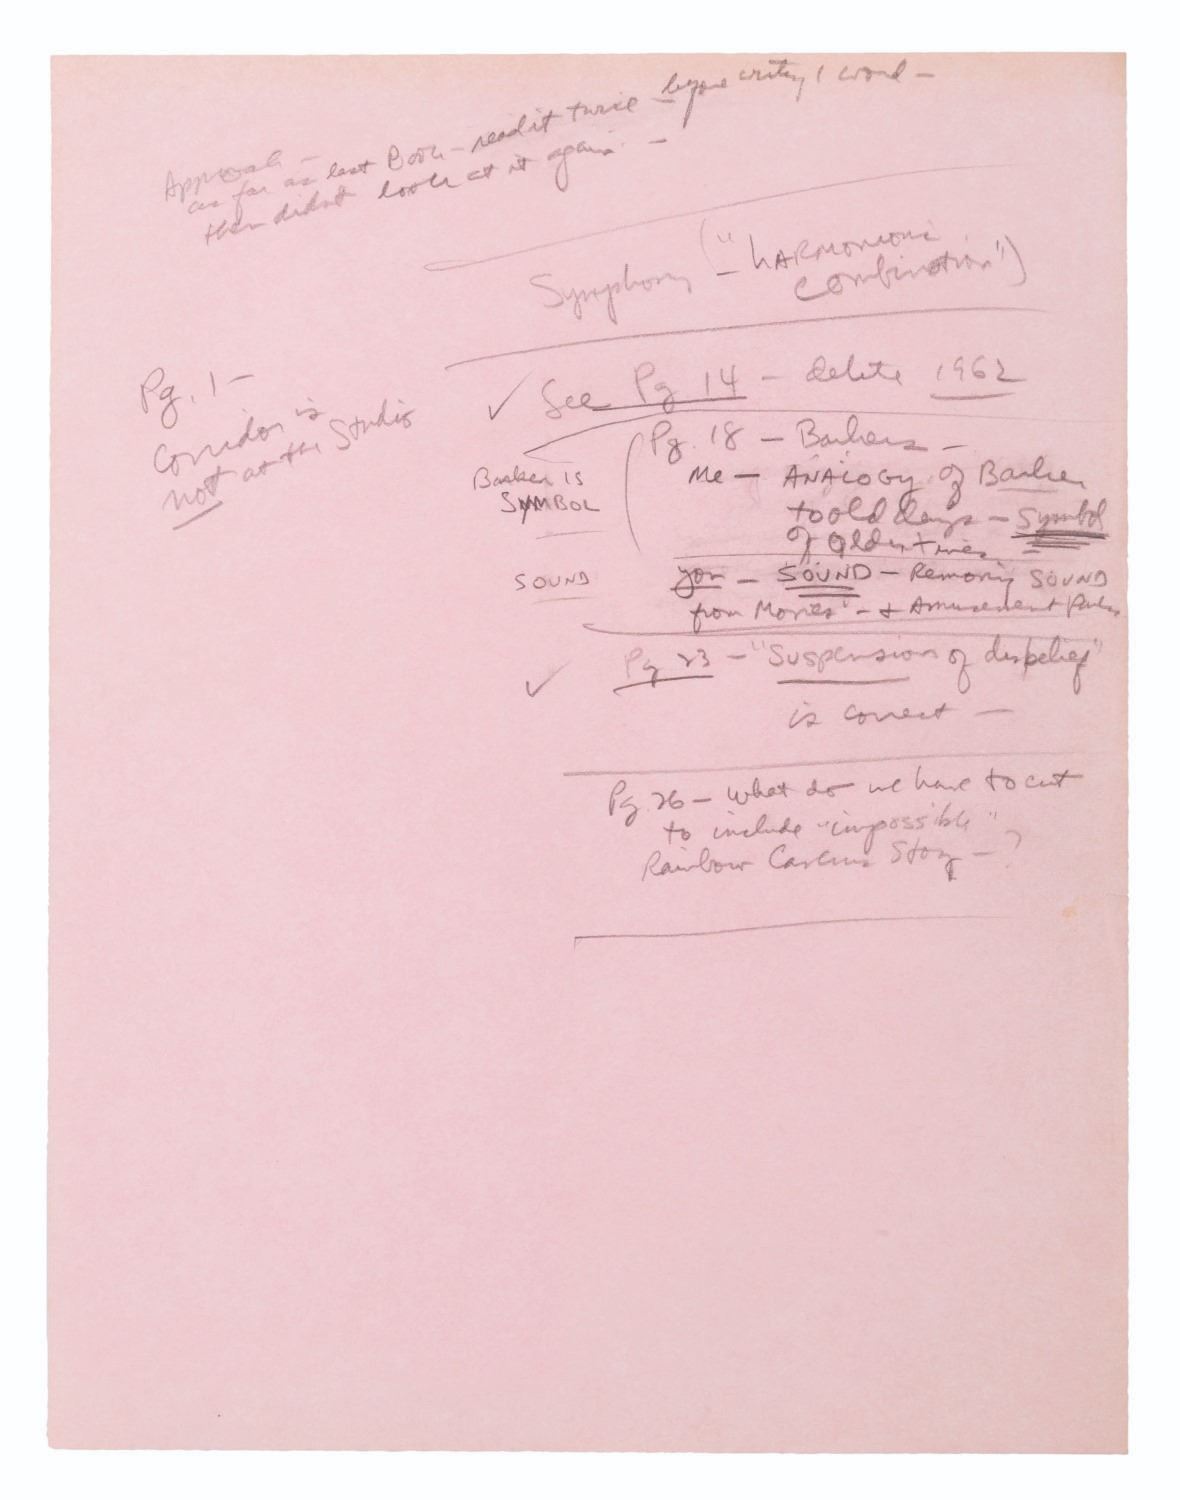 Approach —
as far as last Book — read it twice — before writing 1 word —
then didn't look at it again —
Symphony ("— hARMONIOUS
combination")
Pg. 1 —
Corridor is
not at the Studio
✓ See Pg 14 — delete 1962
Pg. 18 — Barkers —
Me — ANALOGY of Barker
to old days — Symbol
of olden times
Barker is
SYMBOL
SOUND
you — SOUND — Removing SOUND
from Movies — + Amusement Parks
✓ Pg 23 — "Suspension of disbelief"
is correct —
Pg. 26 — What do we have to cut
to include "impossible"
Rainbow Caverns Story — ?